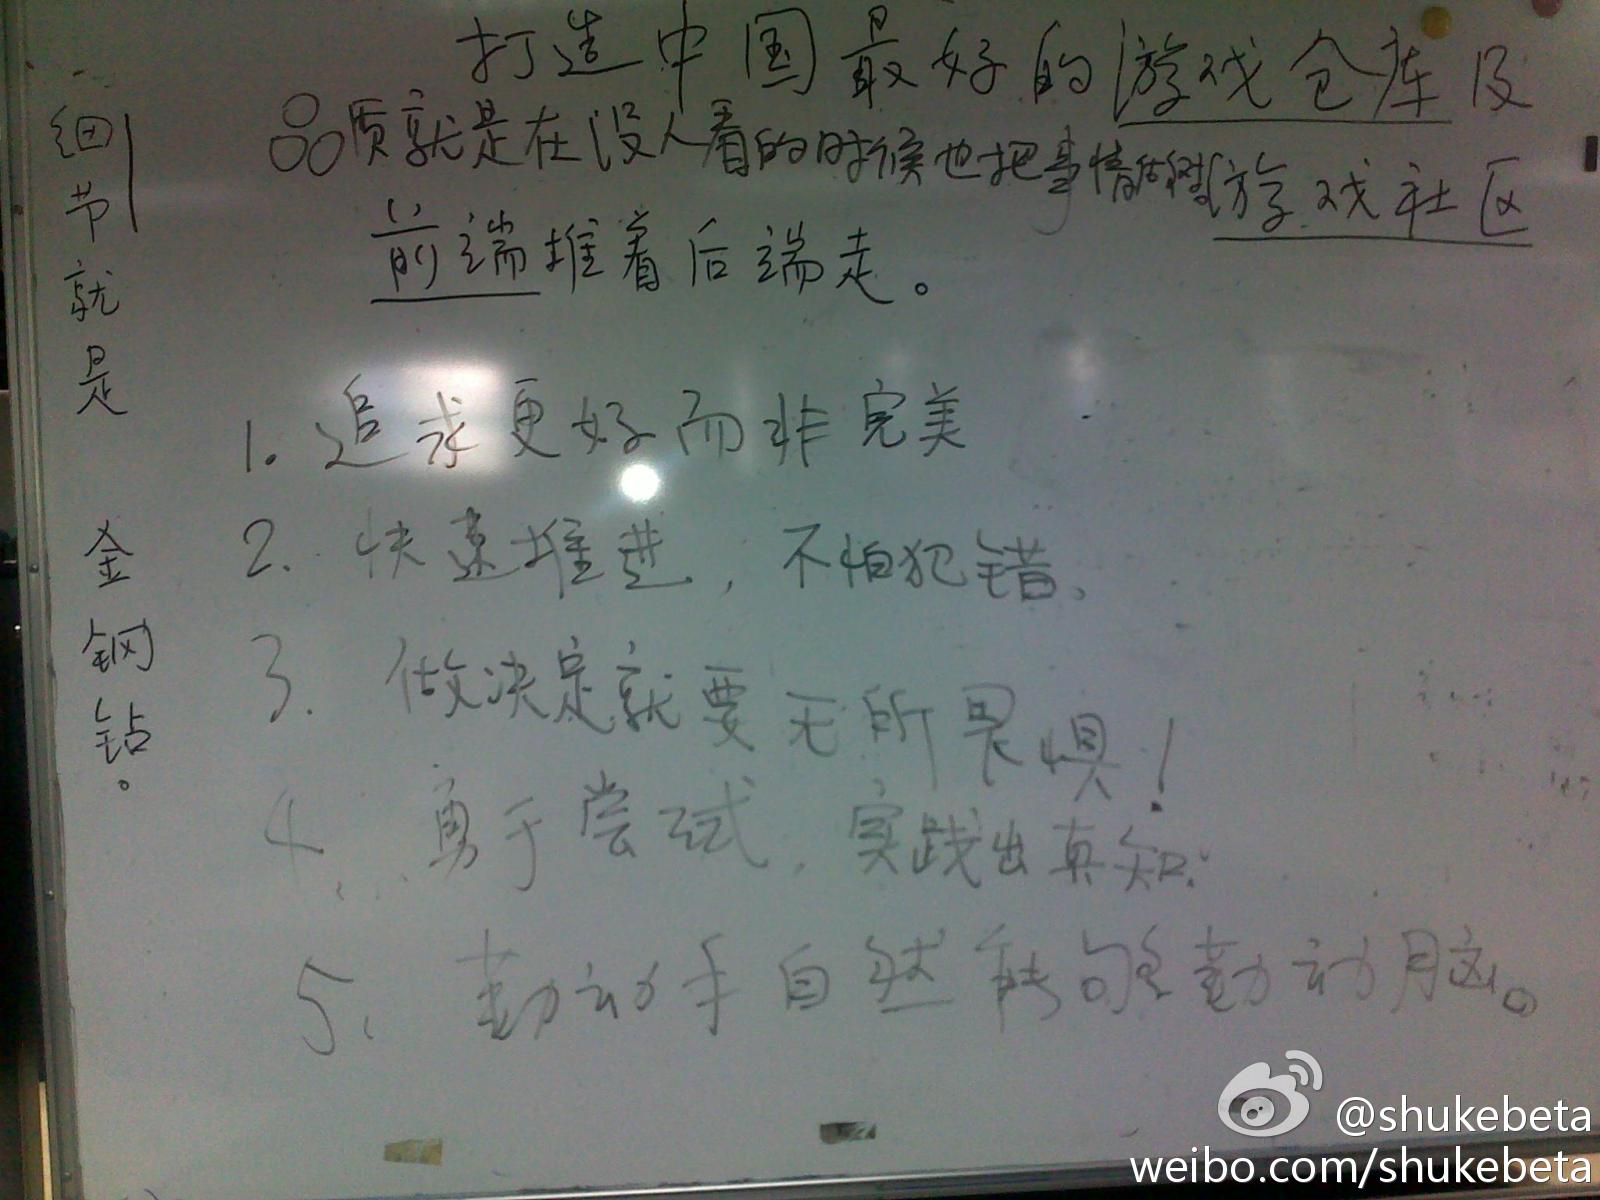 打造中国最好的游戏仓库及
游戏社区
品质就是在没人看的时候也把事情做好
前端推着后端走。
细节就是金钢钻。
1. 追求更好而非完美
2. 快速推进,不怕犯错.
3. 做决定就要无所畏惧!
4. 勇于尝试,实践出真知.
5. 勤动手自然能够勤动脑。
@shukebeta
weibo.com/shukebeta